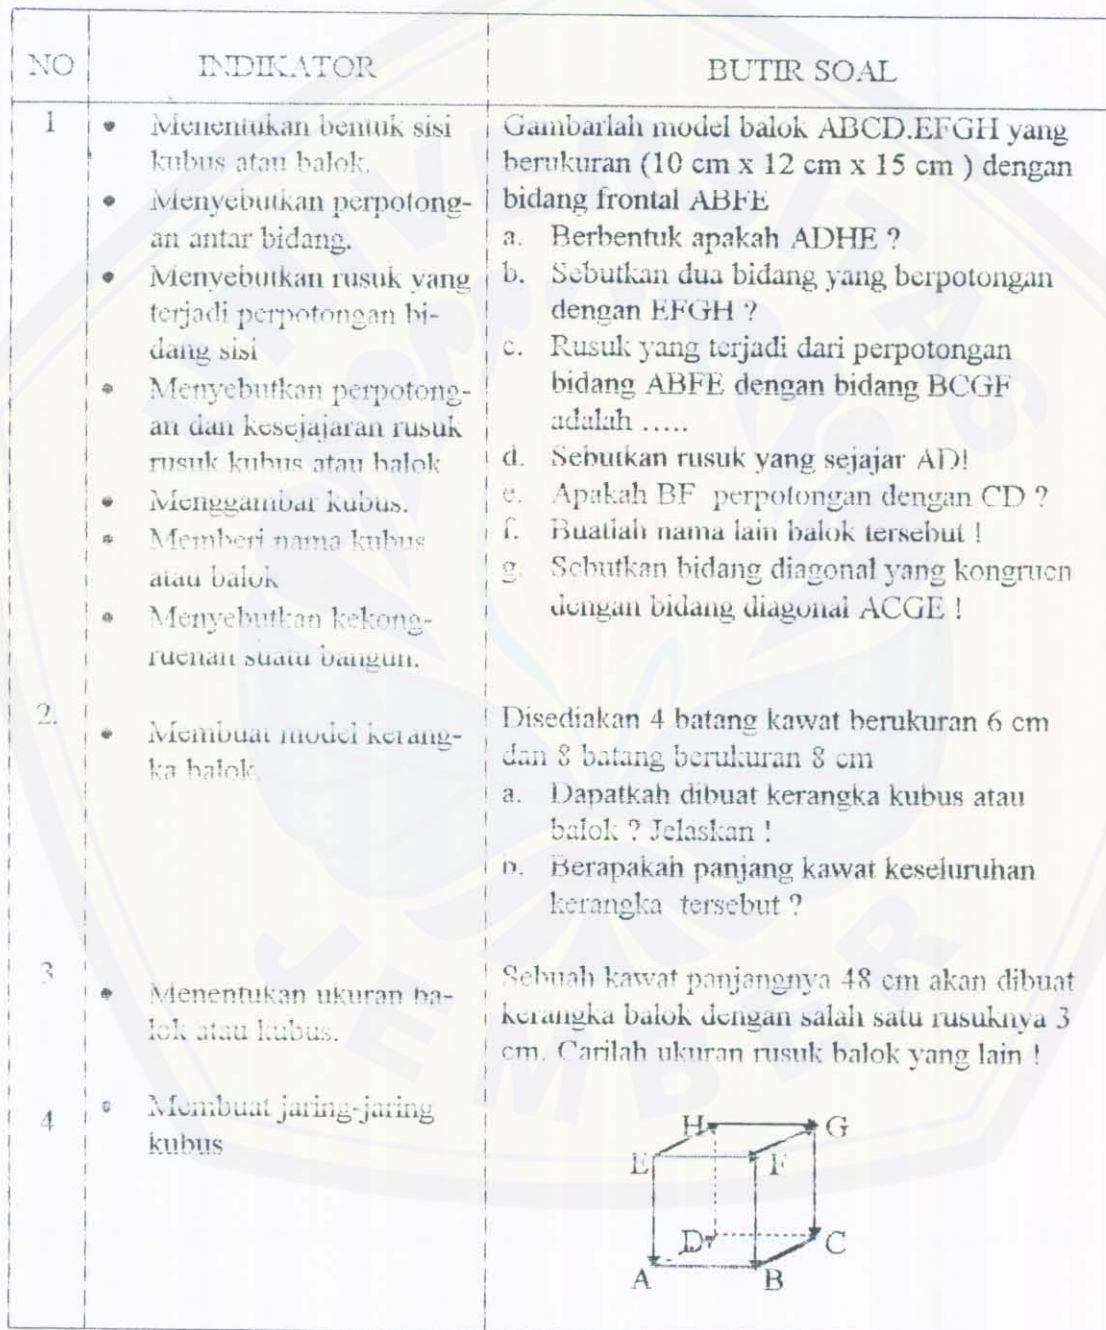 NO
INDIKATOR
BUTIR SOAL
1
• Menentukan bentuk sisi
kubus atau balok.
• Menyebutkan perpotong-
an antar bidang.
• Menyebutkan rusuk yang
terjadi perpotongan bi-
dang sisi
• Menyebutkan perpotong-
an dan kesejajaran rusuk
rusuk kubus atau balok
• Menggambar kubus.
• Memberi nama kubus
atau balok
• Menyebutkan kekong-
ruenan suatu bangun.
Gambarlah model balok ABCD.EFGH yang
berukuran (10 cm x 12 cm x 15 cm ) dengan
bidang frontal ABFE
a. Berbentuk apakah ADHE ?
b. Sebutkan dua bidang yang berpotongan
dengan EFGH ?
c. Rusuk yang terjadi dari perpotongan
bidang ABFE dengan bidang BCGF
adalah …..
d. Sebutkan rusuk yang sejajar AD!
e. Apakah BF perpotongan dengan CD ?
f. Buatlah nama lain balok tersebut !
g. Sebutkan bidang diagonal yang kongruen
dengan bidang diagonal ACGE !
2.
• Membuat model kerang-
ka balok.
Disediakan 4 batang kawat berukuran 6 cm
dan 8 batang berukuran 8 cm
a. Dapatkah dibuat kerangka kubus atau
balok ? Jelaskan !
b. Berapakah panjang kawat keseluruhan
kerangka tersebut ?
3
• Menentukan ukuran ba-
lok atau kubus.
Sebuah kawat panjangnya 48 cm akan dibuat
kerangka balok dengan salah satu rusuknya 3
cm. Carilah ukuran rusuk balok yang lain !
4
• Membuat jaring-jaring
kubus
H G
E F
D C
A B
UNIVERSITAS
JEMBER